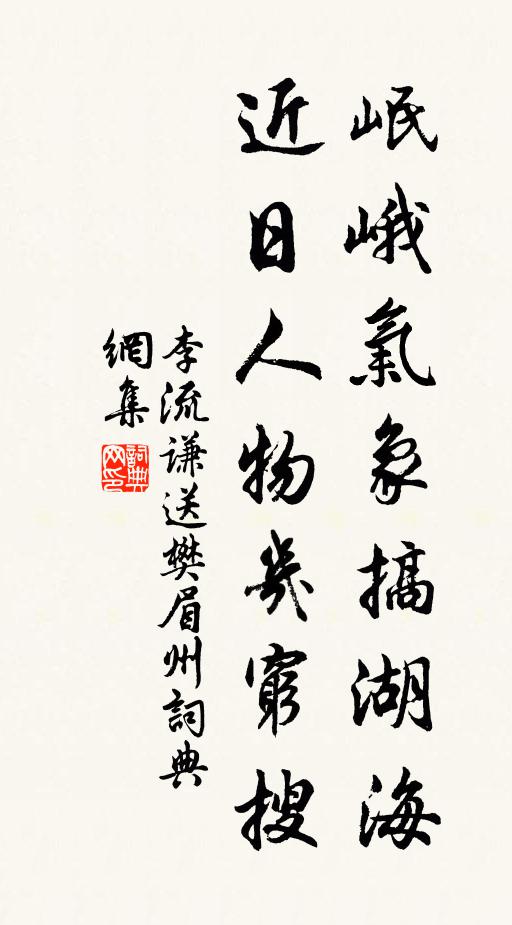 岷峨氣象搞湖海
近日人物幾窮搜
李流謙送樊眉州詞典
網集
詞典
网印